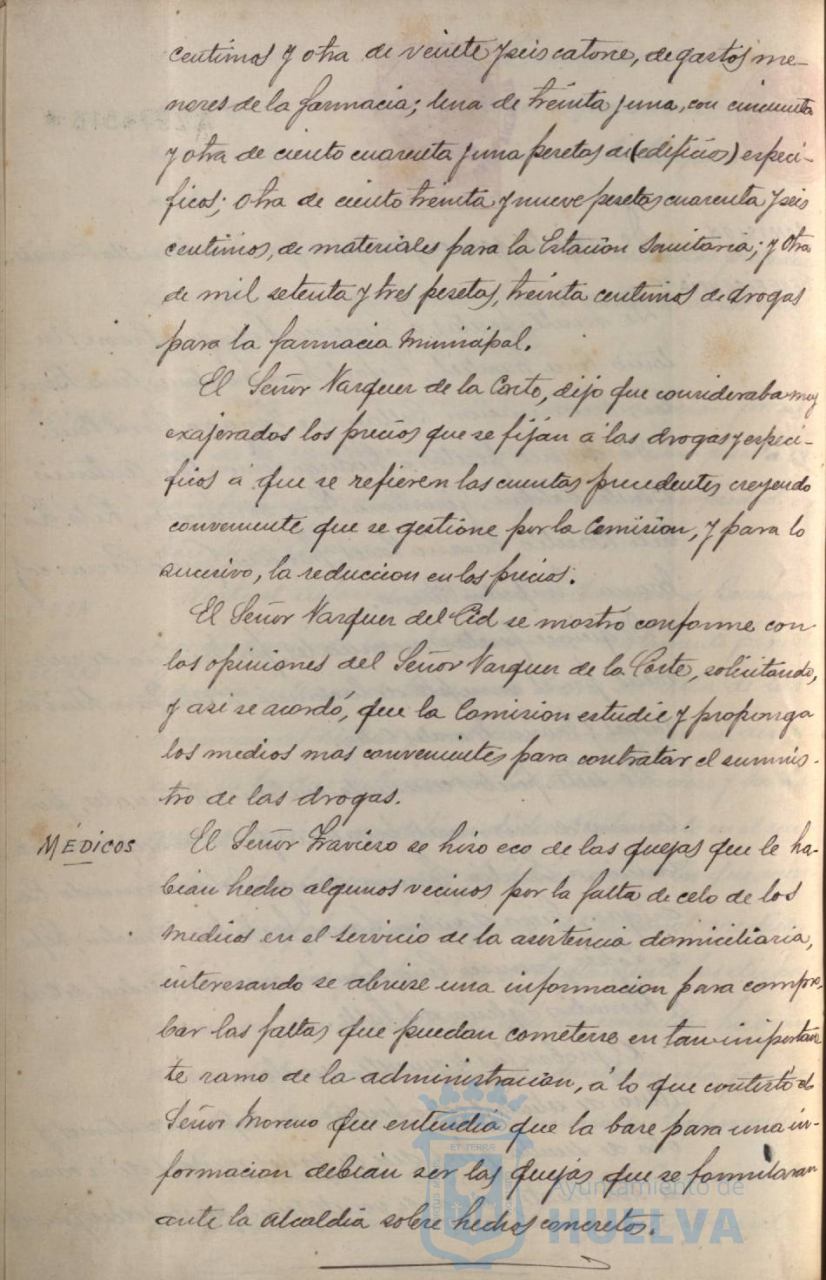 centimos y otra de veinte y seis catorce, de gastos me-
nores de la farmacia; una de treinta y una, con cincuenta
y otra de ciento cuarenta y una pesetas de (edificios) especi-
ficos; otra de ciento treinta y nueve pesetas cuarenta y seis
centimos, de materiales para la Estacion Sanitaria; y otra
de mil setenta y tres pesetas, treinta centimos de drogas
para la farmacia Municipal.
El Señor Vazquez de la Corte, dijo que consideraba muy
exajerados los precios que se fijan á las drogas y especi-
ficos á que se refieren las cuentas precedentes creyendo
conveniente que se gestione por la Comision, y para lo
sucesivo, la reduccion en los precios.
El Señor Vazquez del Cid se mostró conforme con
las opiniones del Señor Vazquez de la Corte, solicitando,
y asi se acordó, que la Comision estudie y proponga
los medios mas convenientes para contratar el suminis-
tro de las drogas.
MÉDICOS
El Señor Travieso se hizo eco de las quejas que le ha-
bian hecho algunos vecinos por la falta de celo de los
medicos en el servicio de la asistencia domiciliaria,
interesando se abriese una informacion para compro-
bar las faltas que puedan cometerse en tan importan-
te ramo de la administracion, á lo que contestó el
Señor Moreno que entendia que la base para una in-
formacion debian ser las quejas que se formularan
ante la Alcaldia sobre hechos concretos.
Ayuntamiento de
HUELVA